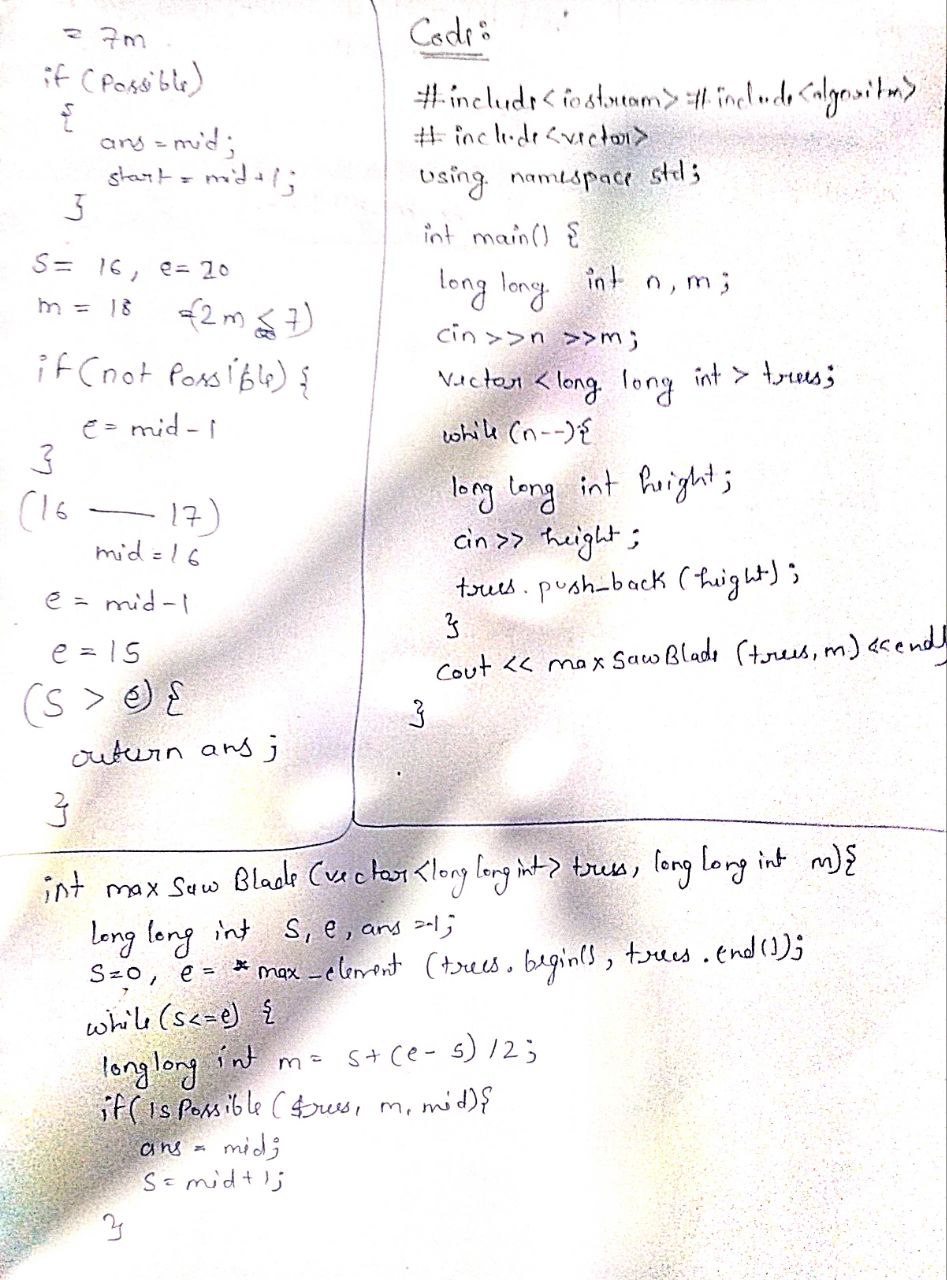 = 7m
if (Possible)
{
ans = mid;
start = mid+1;
}
S= 16, e= 20
m = 18 (2m ≤ 7)
if (not Possible) {
e = mid-1
}
(16 — 17)
mid = 16
e = mid-1
e = 15
(S > e) {
return ans;
}
Code:
#include <iostream> #include <algorithm>
#include <vector>
using namespace std;
int main() {
long long int n, m;
cin >>n >>m;
vector <long long int> trees;
while (n--){
long long int height;
cin >> height;
trees.push_back (height);
}
cout << maxSawBlade (trees, m) <<endl
}
int maxSawBlade (vector<long long int> trees, long long int m){
long long int s, e, ans =-1;
S=0, e = *max_element (trees.begin(), trees.end());
while (s<=e) {
long long int m = s+(e-s)/2;
if( isPossible (trees, m, mid){
ans = mid;
S= mid+1;
}